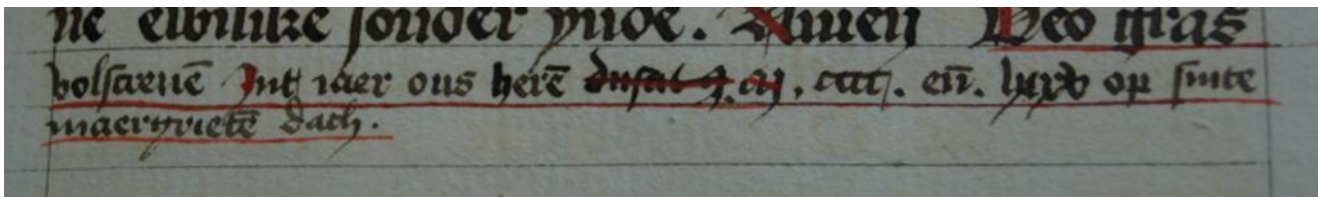 ne ewilike sonder ynde. Amen Deo gras
volscreuē Int iaer ons herē dusat cccc. eñ. lxxv op sinte
maergrietē dach.